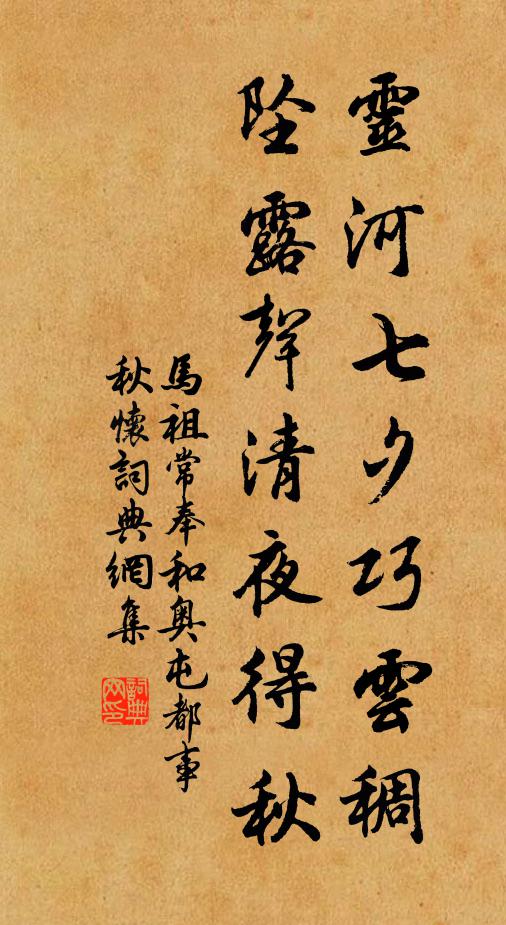 靈河七夕巧雲稠
墜露聲清夜得秋
馬祖常奉和奧屯都事
秋懷詞典網集
詞典
网印